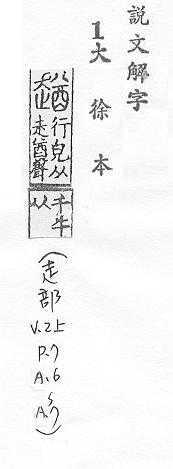 説文解字
1大徐本
趥 行皃从
走酋聲
千牛
切
(走部
V.2上
P.7
A.6
s
A.7)